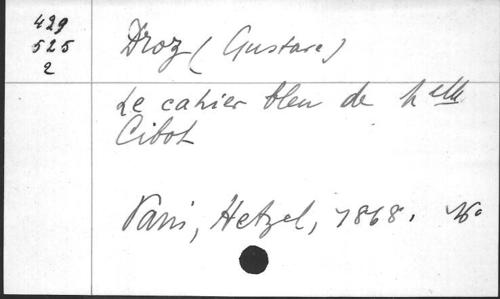 429
525
2
Droz (Gustave)
Le cahier bleu de Melle
Cibot
Paris, Hetzel, 1868.